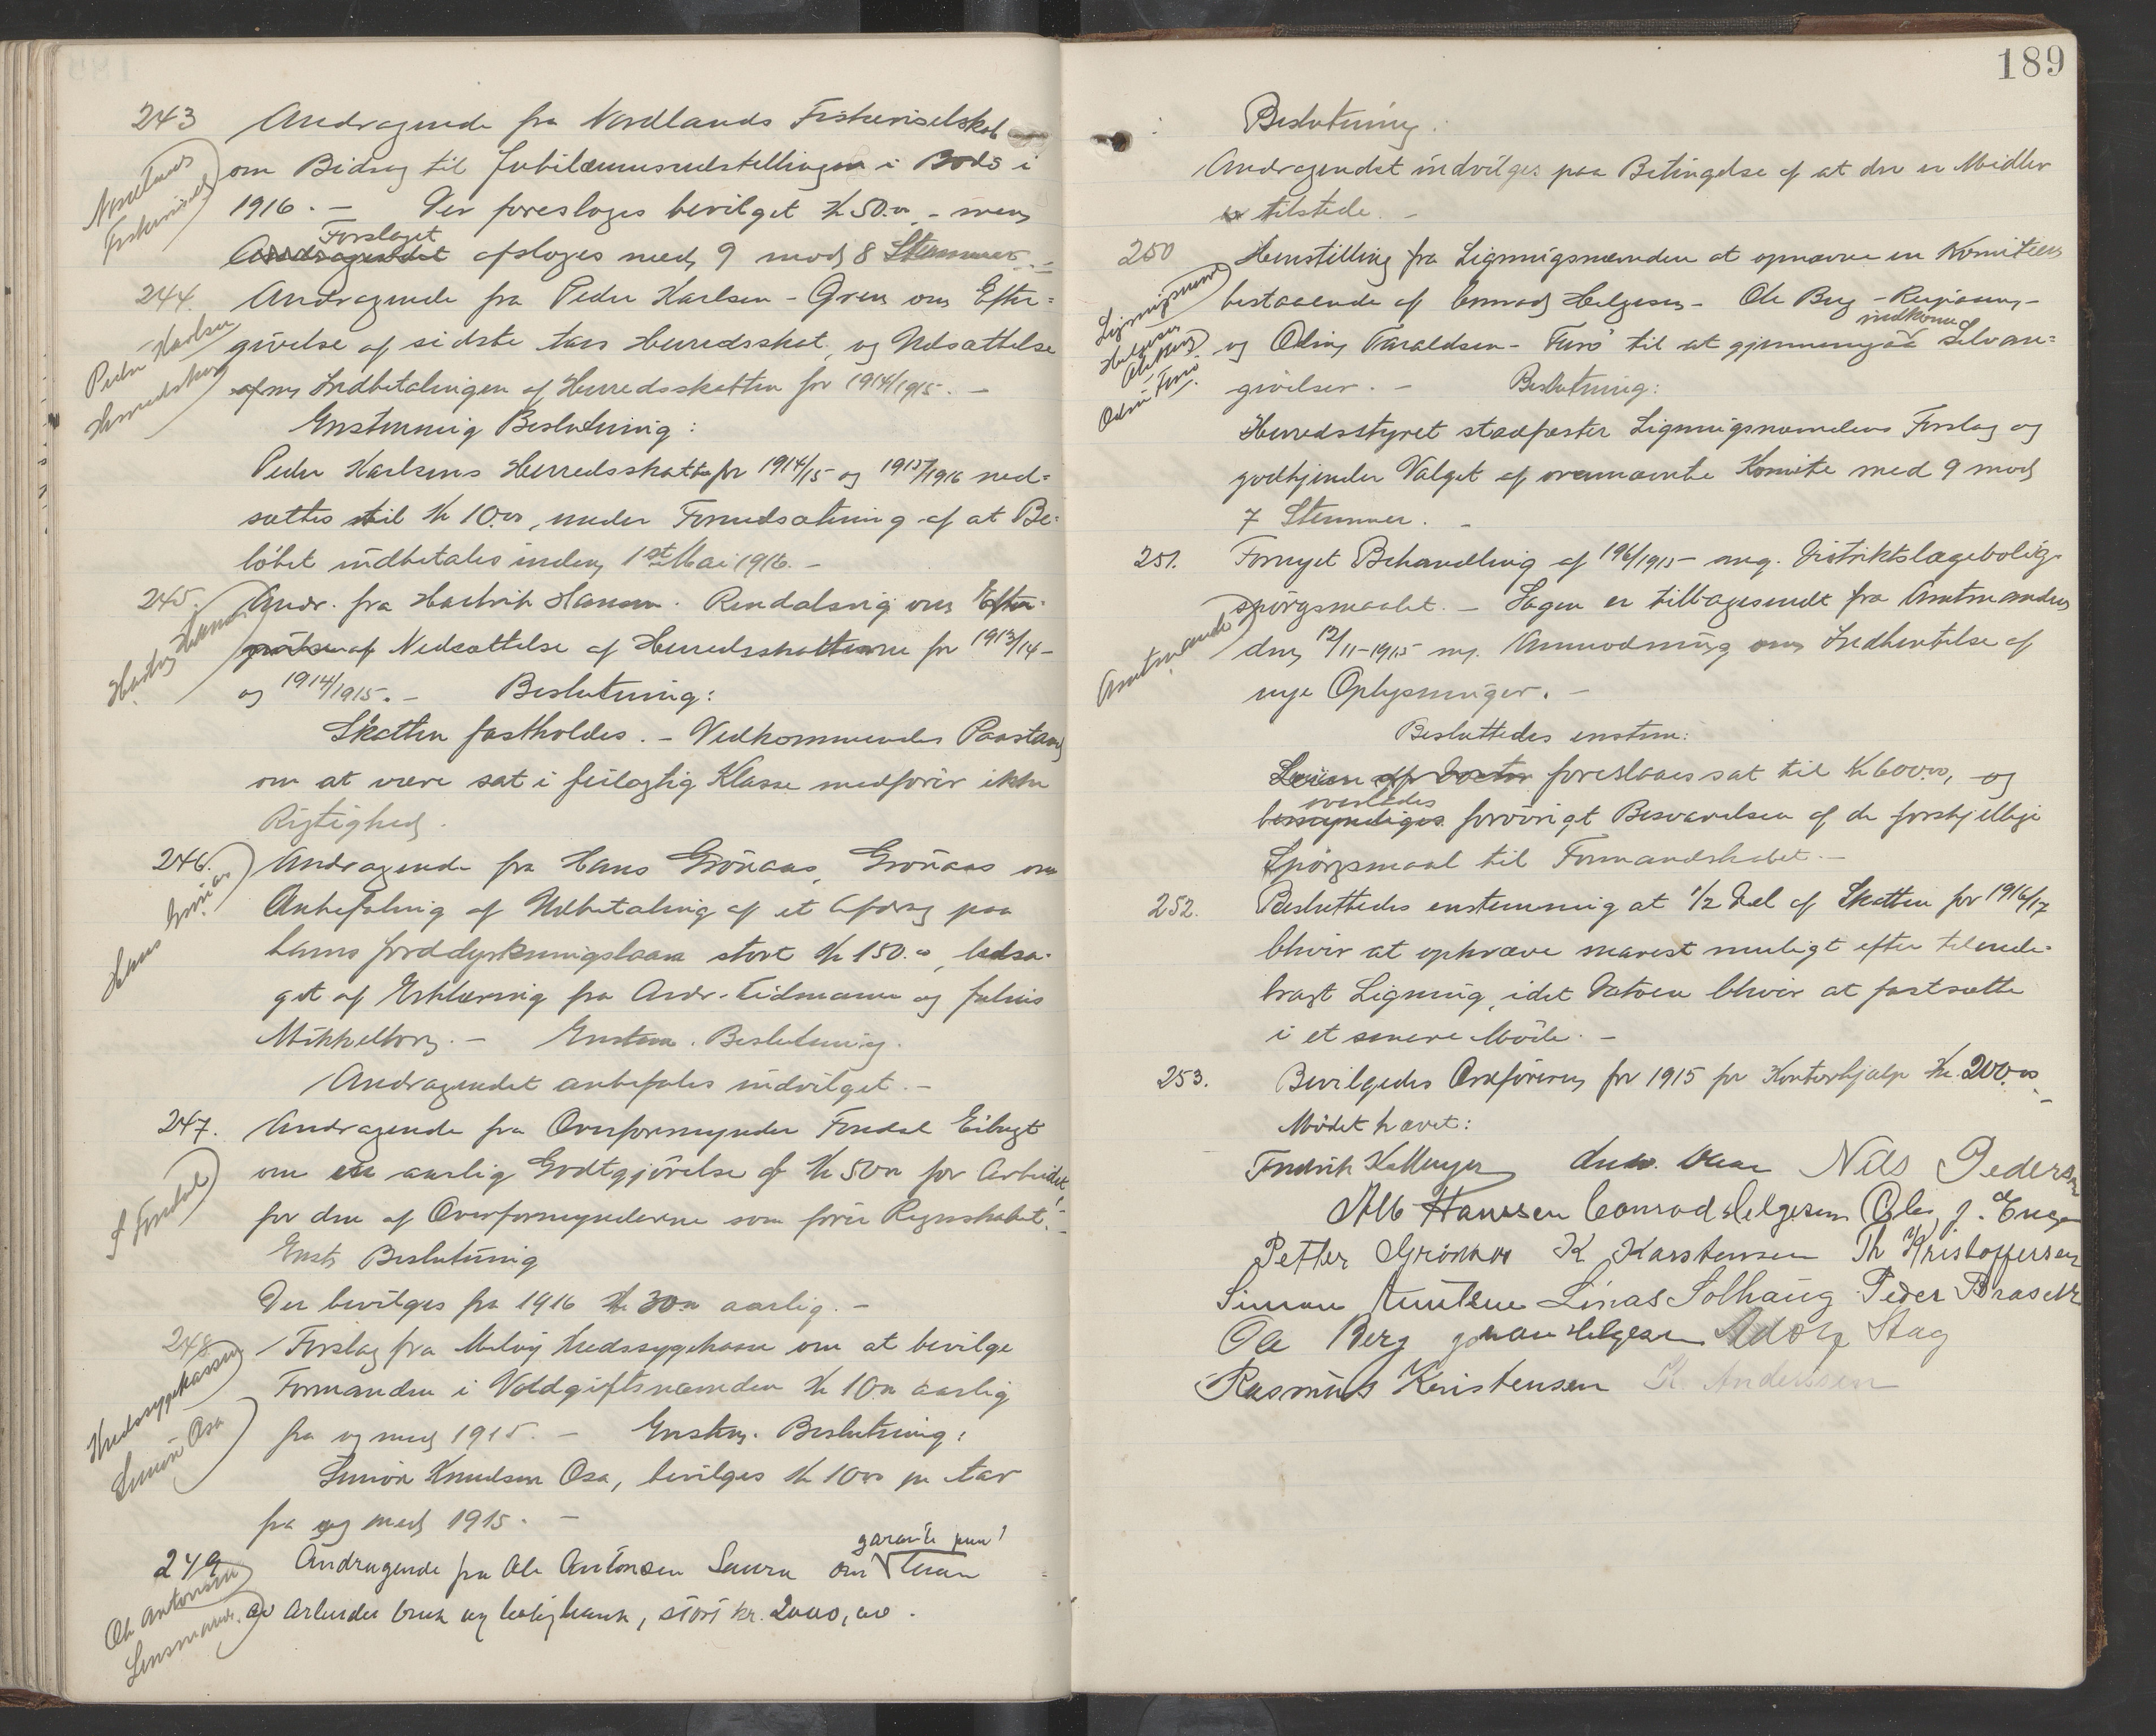 243 Andragende fra Nordlands Fiskeriselskab
om Bidrag til Jubilæumsudstillingen i Bodø i
1916. – Der foresloges bevilget Kr 50.00 – men
Forslaget
Andragendet afsloges med 9 mod 8 Stemmer. –
Nordlands
Fiskeriselsk
244. Andragende fra Peder Karlsen – Gren om Efter=
givelse af sidste Aars Herredsskat, og Udsættelse
med Indbetalingen af Herredsskatten for 1914/1915. –
Peder Karlsen
Herredsskat
Enstemmig Beslutning:
Peder Karlsens Herredsskatte for 1914/15 og 1915/1916 ned=
sættes til Kr 10.00, under Forudsætning af at Be=
løbet indbetales inden 1st Mai 1916. –
245. Andr. fra Hartvik Hansen. Rendalsvig om Efter=
givelse af Nedsættelse af Herredsskatterne for 1913/14 –
og 1914/1915. – Beslutning:
Hartvig Hansen
Skatten fastholdes. – Vedkommendes Paastand
om at være sat i feilagtig Klasse medfører ikke
Rigtighed.
246. Andragende fra Hans Grönaas, Grönaas om
Anbefaling af Udbetaling af et Afdrag paa
hans Jorddyrkningslaan stort Kr 150.00, ledsa=
get af Erklæring fra Andr. Eidmann og Julius
Mikkelborg. – Enstem. Beslutning.
Hans Grönaas
Andragendet anbefales indvilget. –
247. Andragende fra Overformynder Fondal Eibugt
om en aarlig Godtgjörelse af Kr 50.00 for Arbeidet
for den af Overformynderne som förer Regnskabet. –
J Fondal
Enst. Beslutning
Der bevilges fra 1916 Kr 30.00 aarlig. –
248 Forslag fra Melöy Kredssygekasse om at bevilge
Formanden i Voldgiftsnævnden Kr 10.00 aarlig
fra og med 1915. – Enstem. Beslutning:
Kredssygekassen
Simon Osa
Simon Knudsen Osa, bevilges Kr 10.00 pr Aar
fra og med 1915. –
garanti paa
249 Andragende fra Ole Antonsen Saura om laan
av Arbeider bruk og boligbank, stort kr. 2000,00.
Ole Antonsen
Lensmand.
189
Beslutning:
Andragendet indvilges paa Betingelse af at der er Midler
tilstede. –
250 Henstilling fra Ligningsnævnden at opnævne en Komite
bestaaende af Conrad Helgesen – Ole Berg –
indkomne
og Odin Taraldsen – Furö til at gjennemgaa Selvan=
givelser. – Beslutning:
Ligningsnævnd
Helgesen
Ole Berg
Odin Furö.
Herredsstyret stadfæster Ligningsnævndens Forslag og
godkjender Valget af ovennævnte Komite med 9 mod
7 Stemmer. –
251. Fornyet Behandling af 196/1915 – ang. Distriktslægebolig-
spörgsmaalet. – Sagen er tilbagesendt fra Amtmanden
den 12/11–1915 m. Anmodning om Indhentelse af
nye Oplysninger. –
Amtmanden
Besluttedes enstem:
Leien af Doctor foreslaaes sat til Kr 600.00, – og
overlades
bemyndiges forövrigt Besvarelsen af de forskjellige
Spörgsmaal til Formandskabet. –
252. Besluttedes enstemmig at 1/2 Del af Skatten for 1916/17
bliver at opkræve snarest muligt efter tilende-
bragt Ligning, idet Datoen bliver at fastsætte
i et senere Möde. –
253. Bevilgedes Ordföreren for 1915 for Kontorhjælp Kr. 200.00 –
Mödet hævet:
Fredrik Nils Pedersen
Alb Hanssen Conrad Helgesen Ole J. Enga
Petter Grönaas K Karstensen Th Kristoffersen
Simon Knutsen Linas Solhaug Peder Brasetvik
Ole Berg Johan Helgesen Adolf Stag
Rasmus Kristensen K. Anderssen